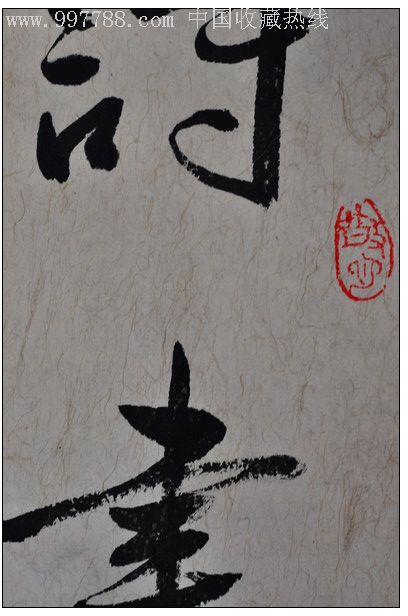 www.997788.com 中国收藏热线
詩
書